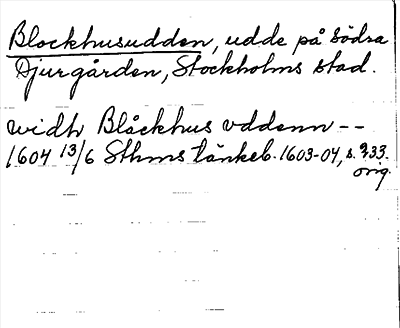 Blockhusudden, udde på Södra
Djurgården, Stockholms stad.
widh Blåckhus vddenn --
1604 13/6 Sthms tänkeb. 1603-04, s. 233.
orig.